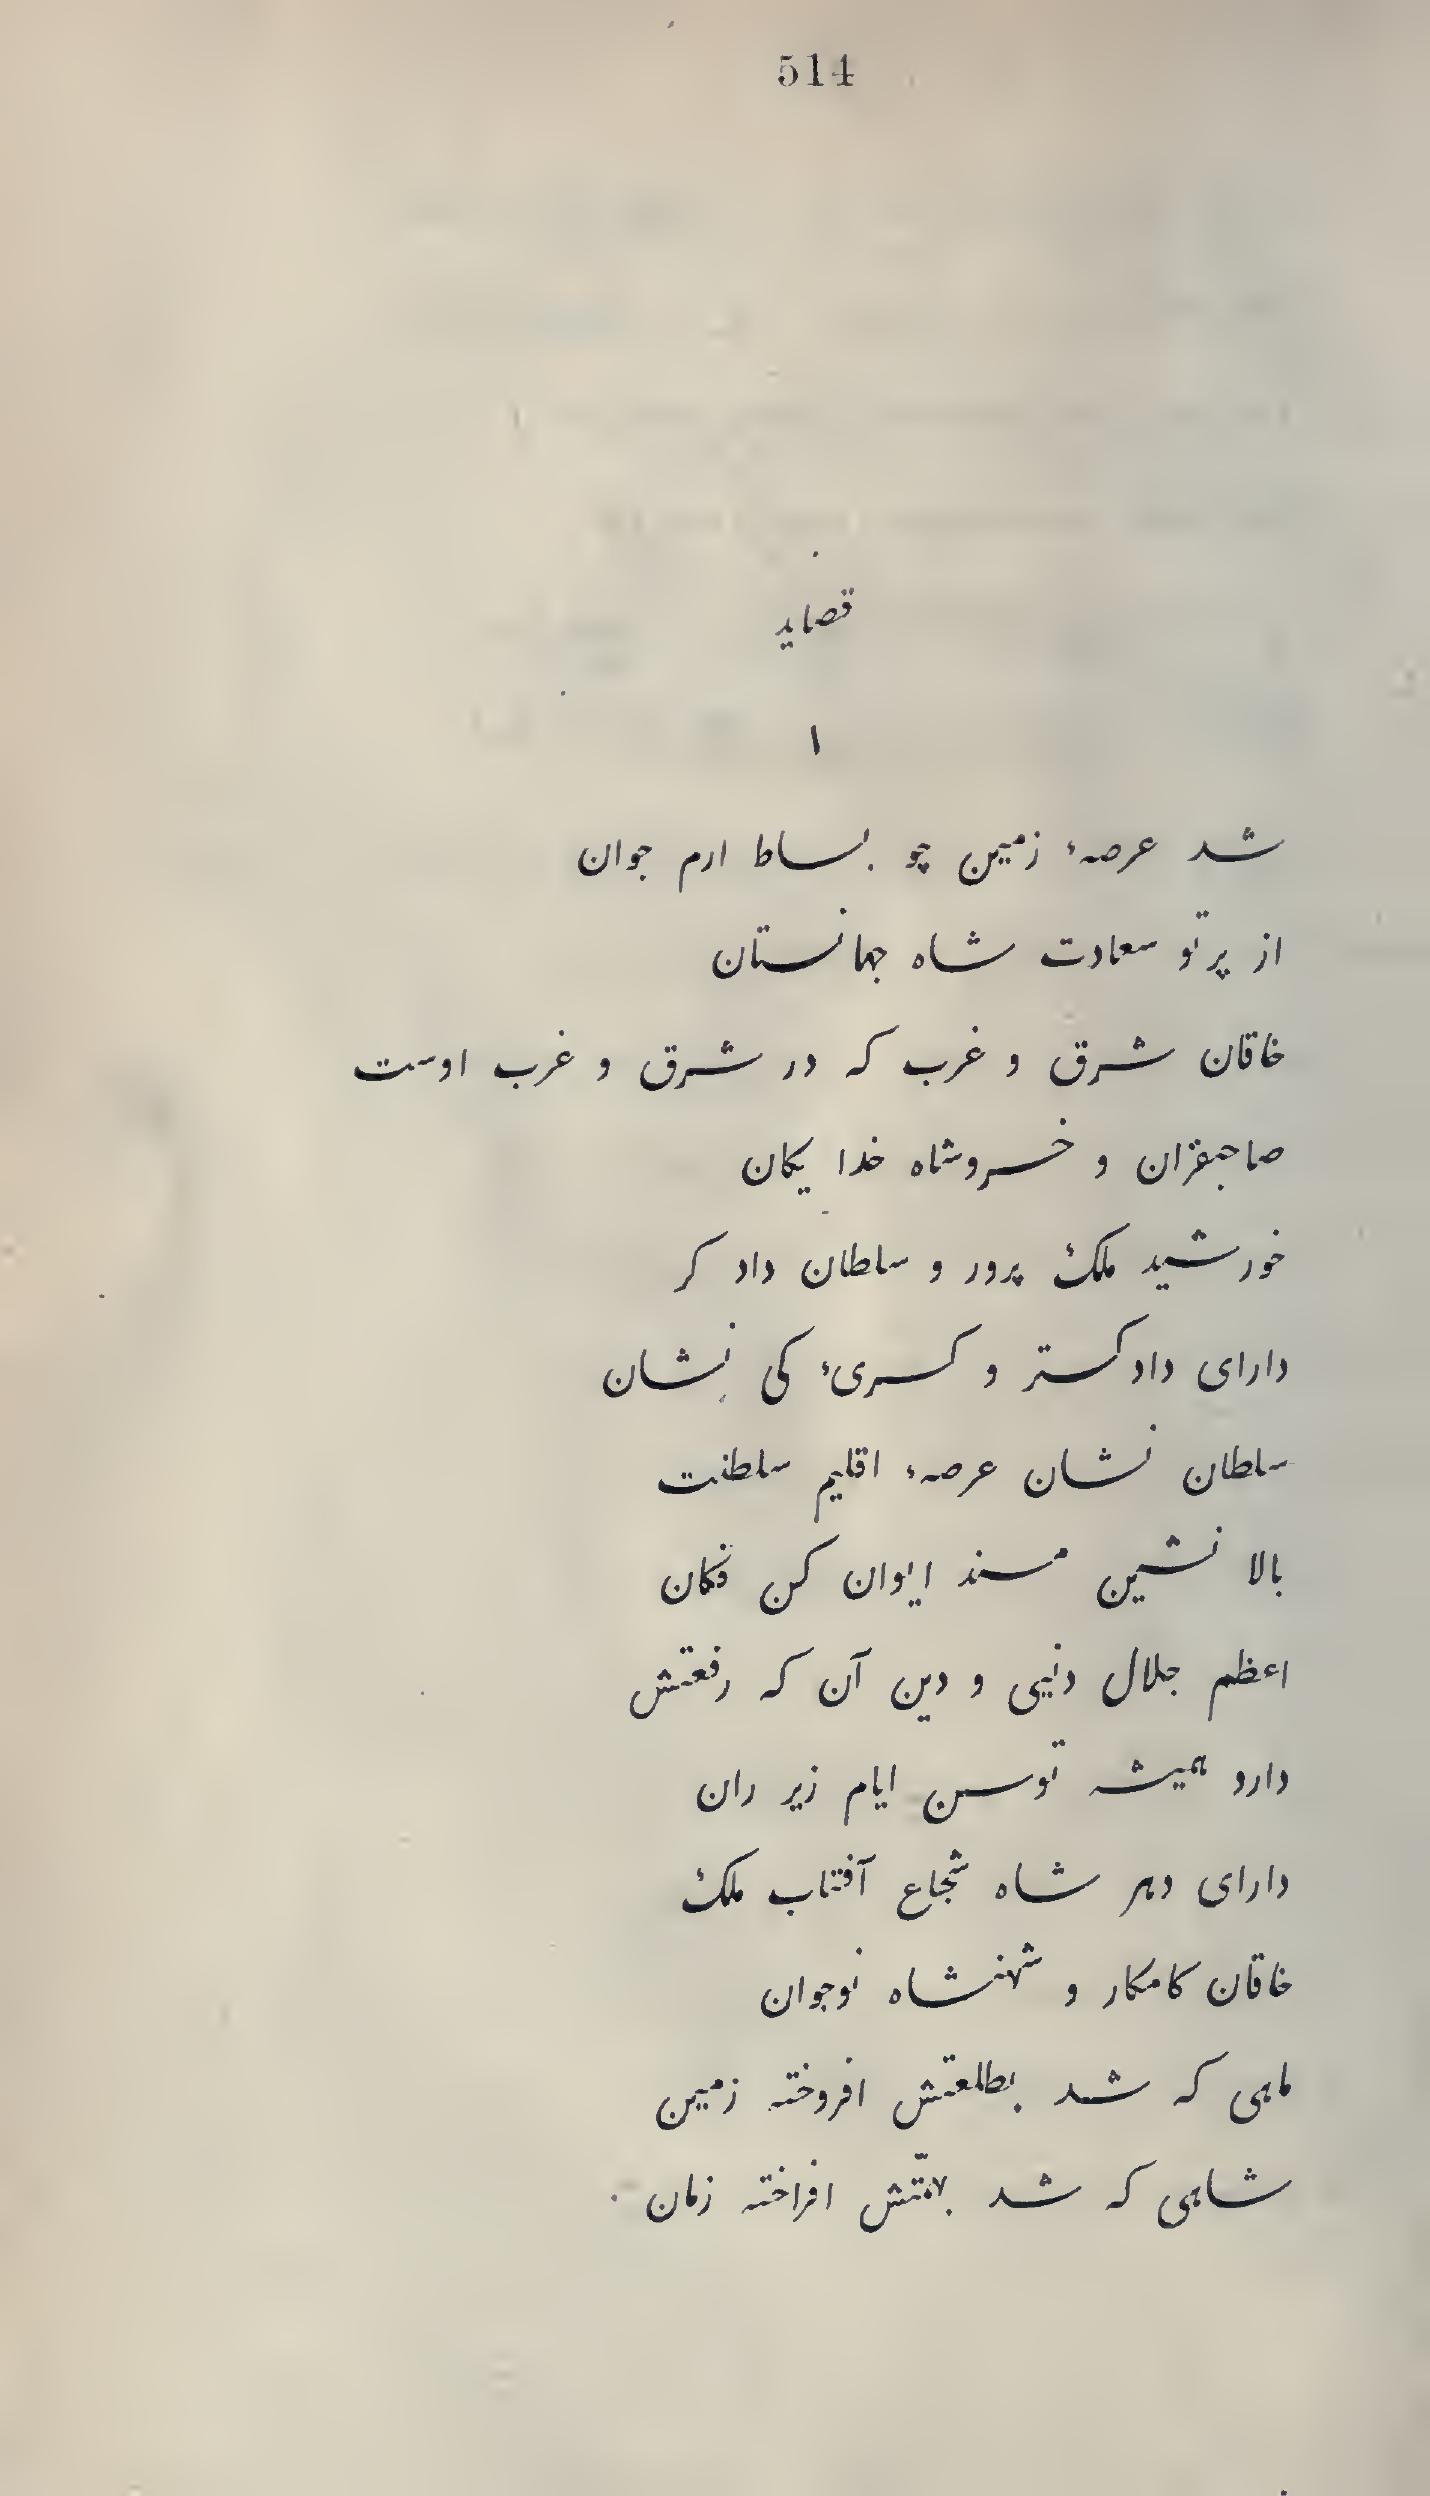 514
قصاید
١
شد عرصهٔ زمین چو بساط ارم جوان
از پرتو سعادت شاه جهانستان
خاقان شرق و غرب که در شرق و غرب اوست
صاحبقران و خسروشاه خدا یکان
خورشید ملک پرور و سلطان داد کر
دارای داد کستر و کسریٔ کی نشان
سلطان نشان عرصهٔ اقلیم سلطنت
بالا نشین مسند ایوان کن فکان
اعظم جلال دنیی و دین آن که رفعتش
دارد همیشه توسن ایام زیر ران
دارای دهر شاه شجاع آفتاب ملک
خاقان کامکار و شهنشاه نوجوان
ماهی که شد بطلعتش افروخته زمین
شاهی که شد بهمّتش افراخته زمان